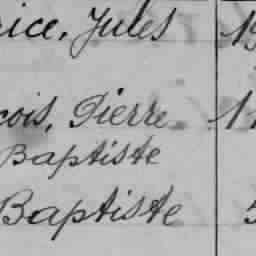 rice, Jules
çois, Pierre
Baptiste
Baptiste 5